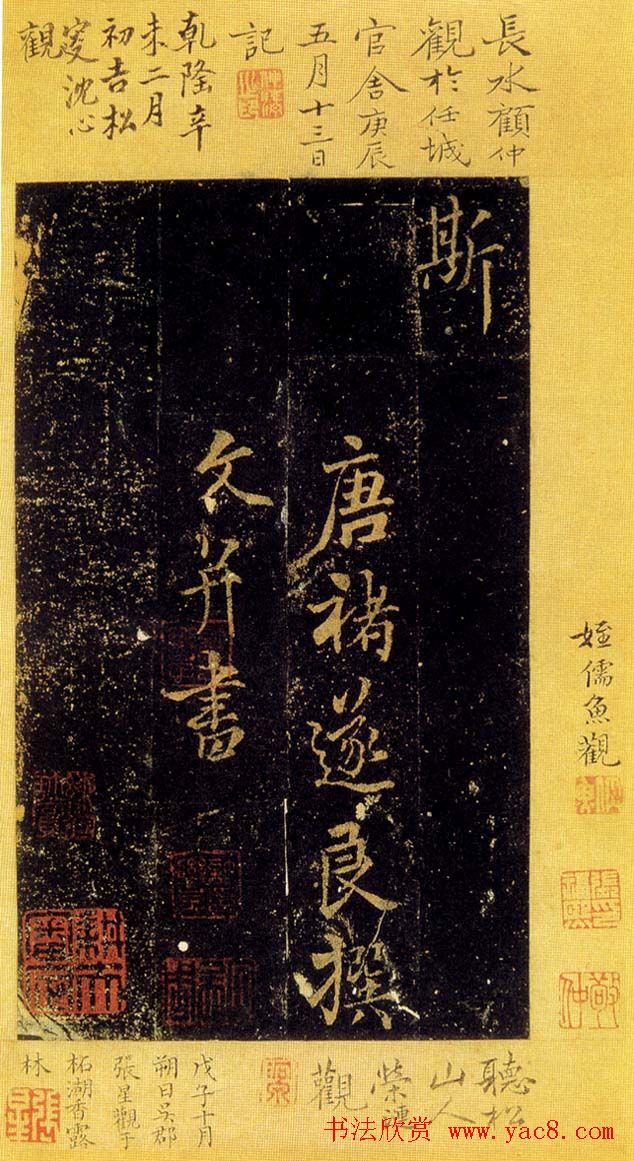 長水顧仲
觀於任城
官舍庚辰
五月十三日
記
乾隆辛
未二月
初吉松
窔沈心
觀
斯
唐褚遂良撰
文并書
姪儒魚觀
聽松
山人
榮漣
觀
戊子十月
朔日吳郡
張星觀于
柘湖香露
林
书法欣赏 www.yac8.com